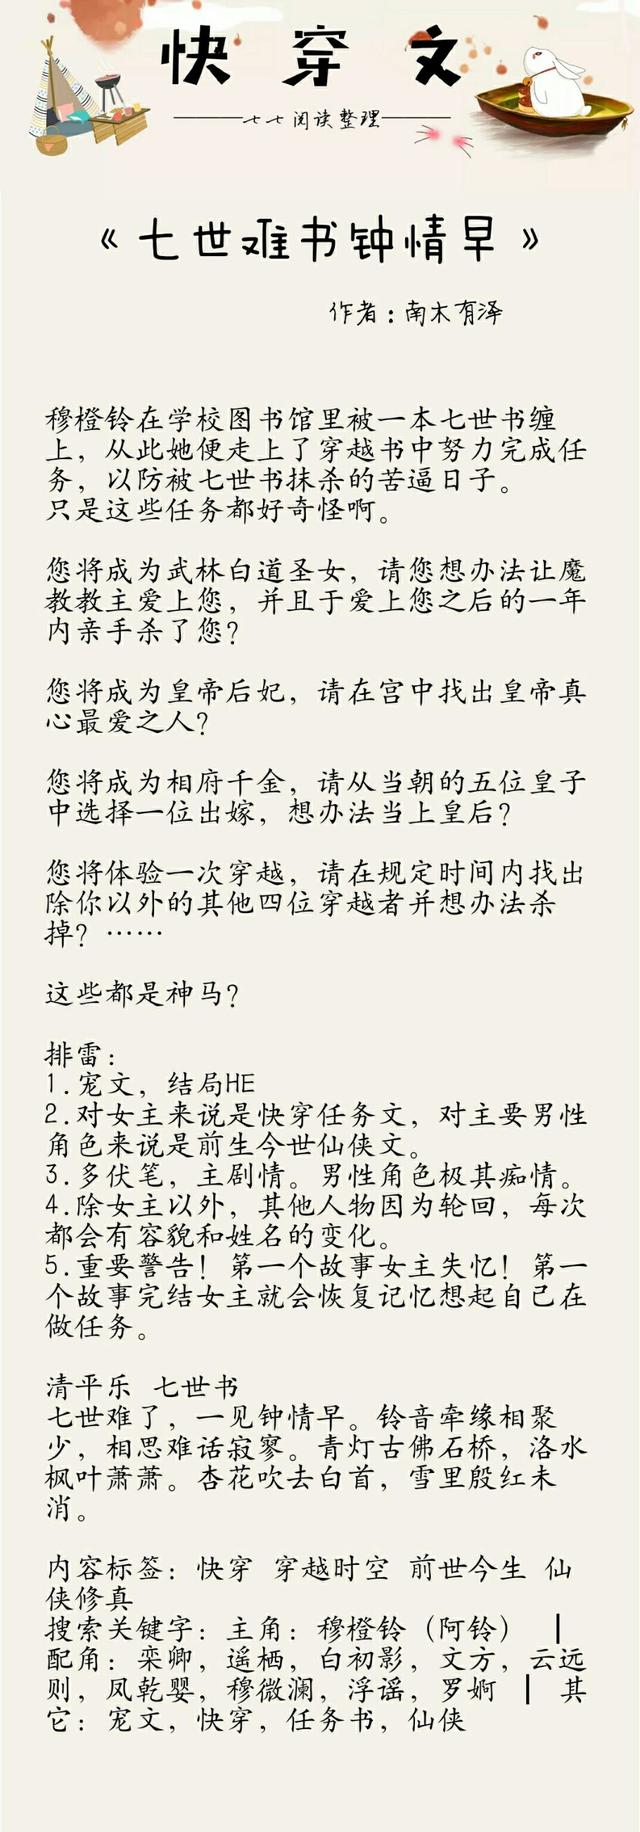 快穿文
七七阅读整理
《七世难书钟情早》
作者：南木有泽
穆橙铃在学校图书馆里被一本七世书缠
上，从此她便走上了穿越书中努力完成任
务，以防被七世书抹杀的苦逼日子。
只是这些任务都好奇怪啊。
您将成为武林白道圣女，请您想办法让魔
教教主爱上您，并且于爱上您之后的一年
内亲手杀了您？
您将成为皇帝后妃，请在宫中找出皇帝真
心最爱之人？
您将成为相府千金，请从当朝的五位皇子
中选择一位出嫁，想办法当上皇后？
您将体验一次穿越，请在规定时间内找出
除你以外的其他四位穿越者并想办法杀
掉？……
这些都是神马？
排雷：
1.宠文，结局HE
2.对女主来说是快穿任务文，对主要男性
角色来说是前生今世仙侠文。
3.多伏笔，主剧情。男性角色极其痴情。
4.除女主以外，其他人物因为轮回，每次
都会有容貌和姓名的变化。
5.重要警告！第一个故事女主失忆！第一
个故事完结女主就会恢复记忆想起自己在
做任务。
清平乐 七世书
七世难了，一见钟情早。铃音牵缘相聚
少，相思难话寂寥。青灯古佛石桥，洛水
枫叶萧萧。杏花吹去白首，雪里殷红未
消。
内容标签：快穿 穿越时空 前世今生 仙
侠修真
搜索关键字：主角：穆橙铃（阿铃） ┃
配角：栾卿，遥栖，白初影，文方，云远
则，凤乾婴，穆微澜，浮谣，罗婀 ┃ 其
它：宠文，快穿，任务书，仙侠